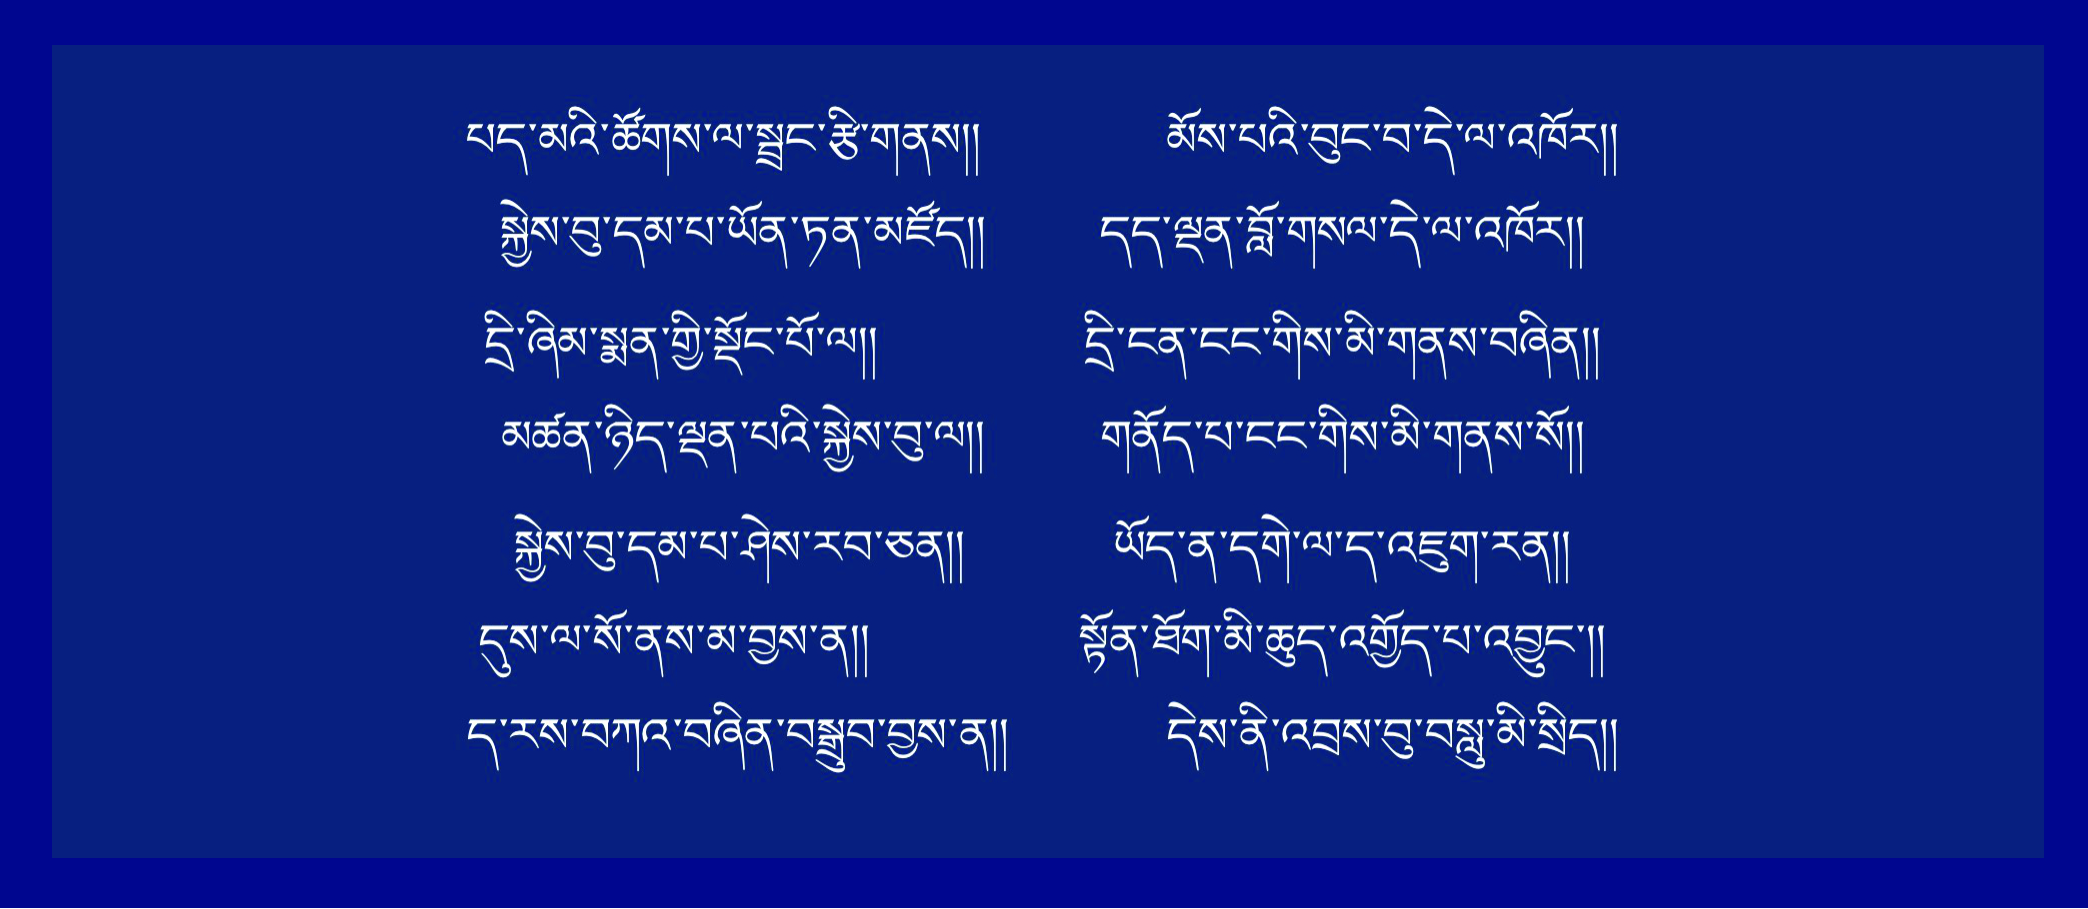 པད་མའི་ཚོགས་ལ་སྦྲང་རྩི་གནས།། མོས་པའི་བུང་བ་དེ་ལ་འཁོར།།
སྐྱེས་བུ་དམ་པ་ཡོན་ཏན་མཛོད།། དད་ལྡན་བློ་གསལ་དེ་ལ་འཁོར།།
དྲི་ཞིམ་སྨན་གྱི་སྡོང་པོ་ལ།། དྲི་ངན་ངང་གིས་མི་གནས་བཞིན།།
མཚན་ཉིད་ལྡན་པའི་སྐྱེས་བུ་ལ།། གནོད་པ་ངང་གིས་མི་གནས་སོ།།
སྐྱེས་བུ་དམ་པ་ཤེས་རབ་ཅན།། ཡོད་ན་དགེ་ལ་ད་འཇུག་རན།།
དུས་ལ་སོ་ནས་མ་བྱས་ན།། སྟོན་ཐོག་མི་ཆུད་འགྱོད་པ་འབྱུང་།།
ད་རས་བཀའ་བཞིན་བསྒྲུབ་བྱས་ན།། དེས་ནི་འབྲས་བུ་བསླུ་མི་སྲིད།།